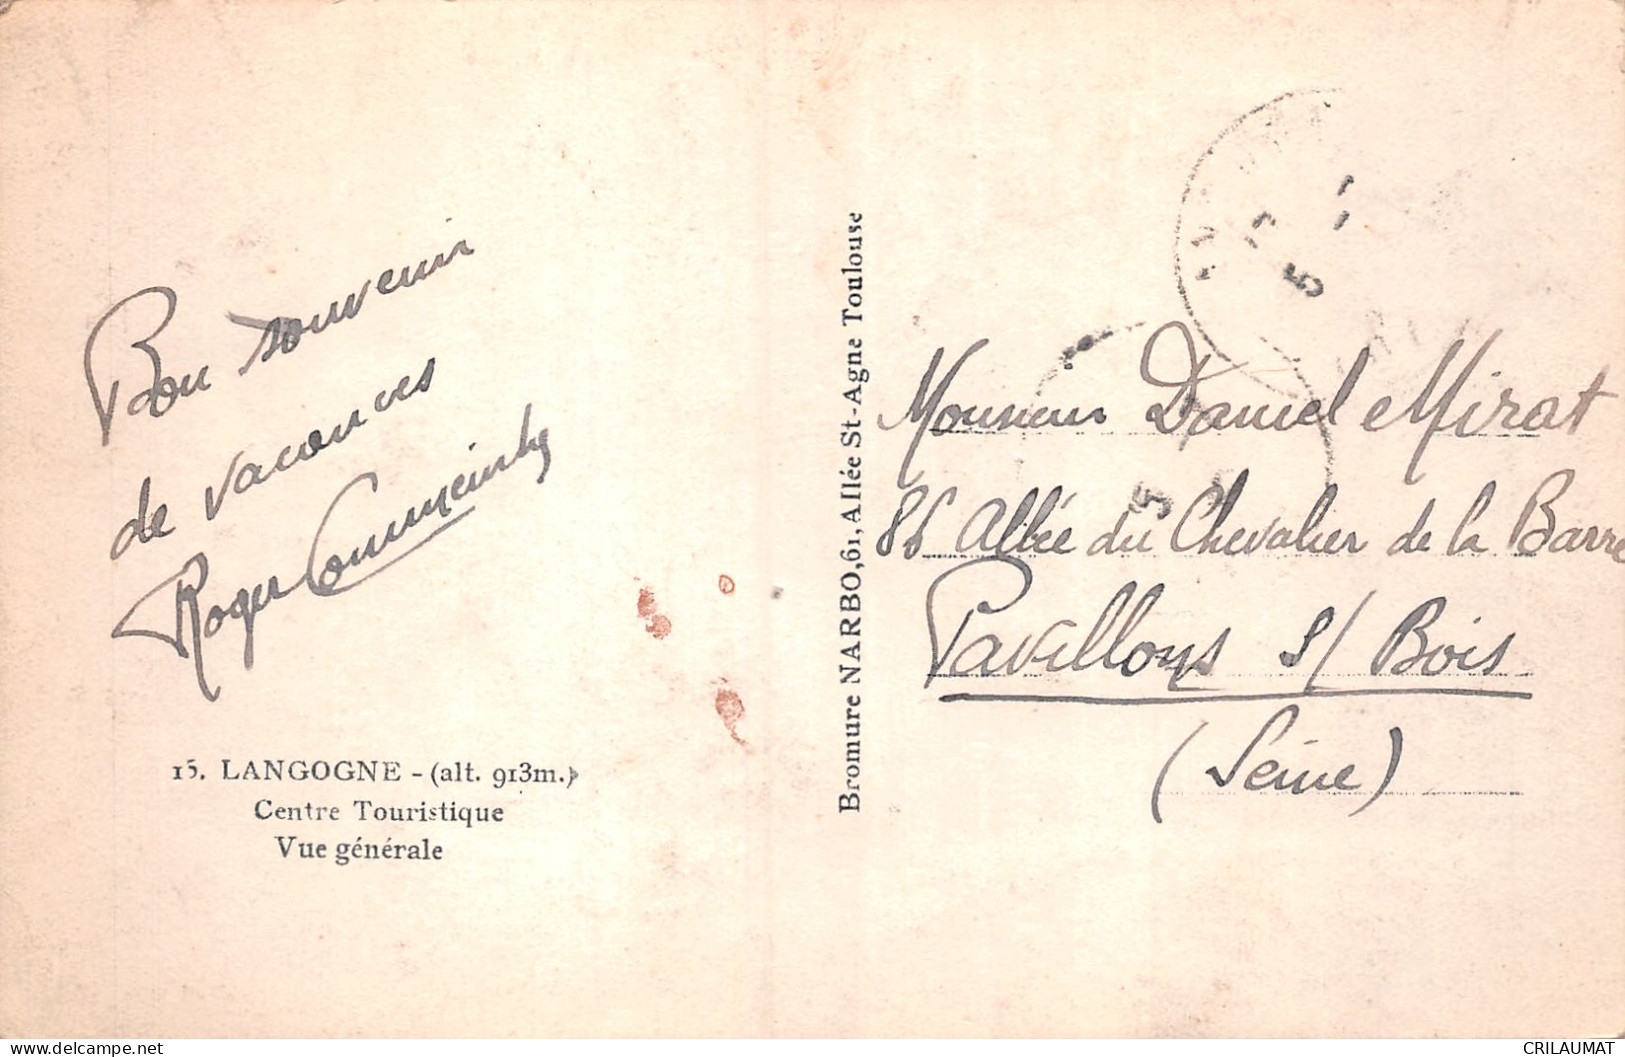 Bon souvenir
de vacances
Roger
15. LANGOGNE - (alt. 913m.)
Centre Touristique
Vue générale
Bromure NARBO, 61, Allée St-Agne Toulouse
Monsieur Daniel Mirat
86 Allée du Chevalier de la Barre
Pavillons s/ Bois
(Seine)
CRILAUMAT
www.delcampe.net